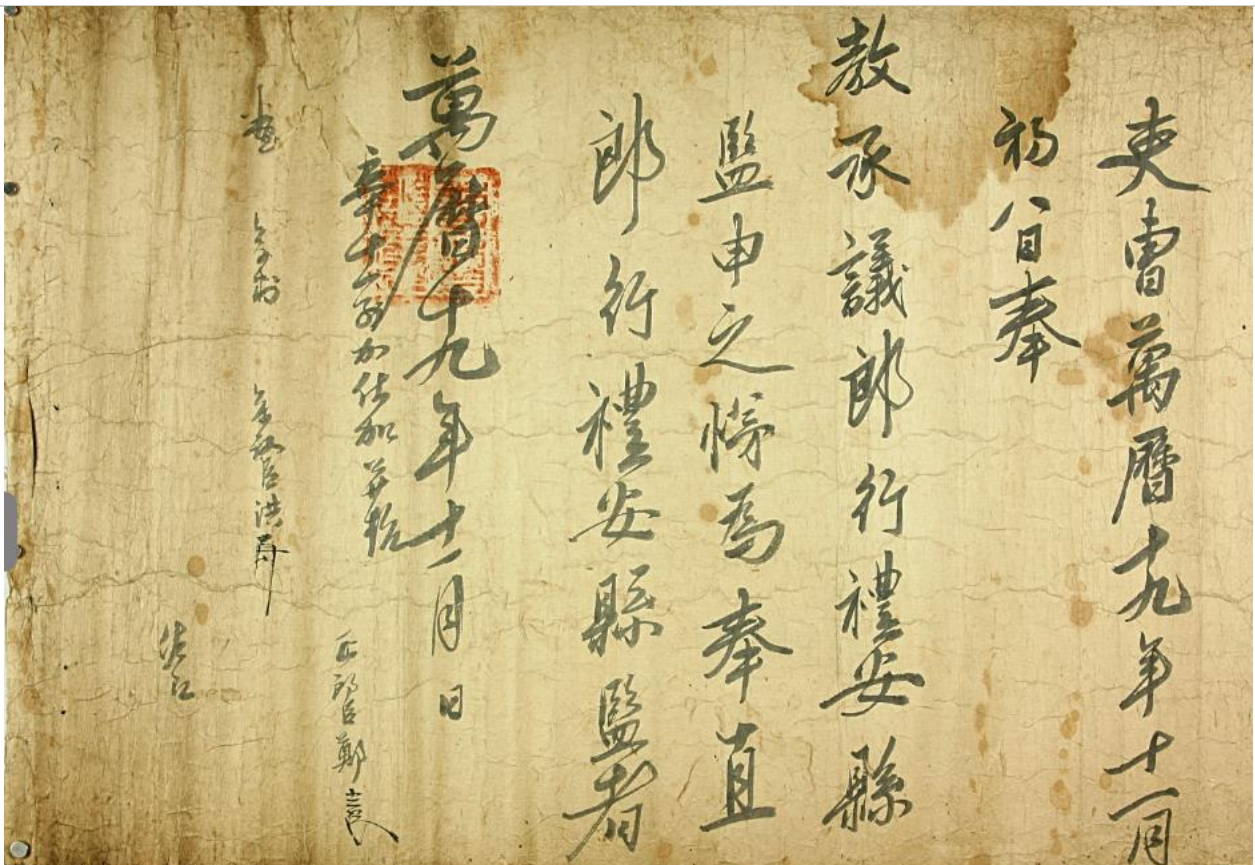 吏曹萬曆十九年十一月
初八日奉
教承議郎行禮安縣
監申之悌爲奉直
郎行禮安縣監者
萬曆十九年十一月 日
辛十六別加仕加并超
正郎臣鄭
參判 參議臣洪
佐郎